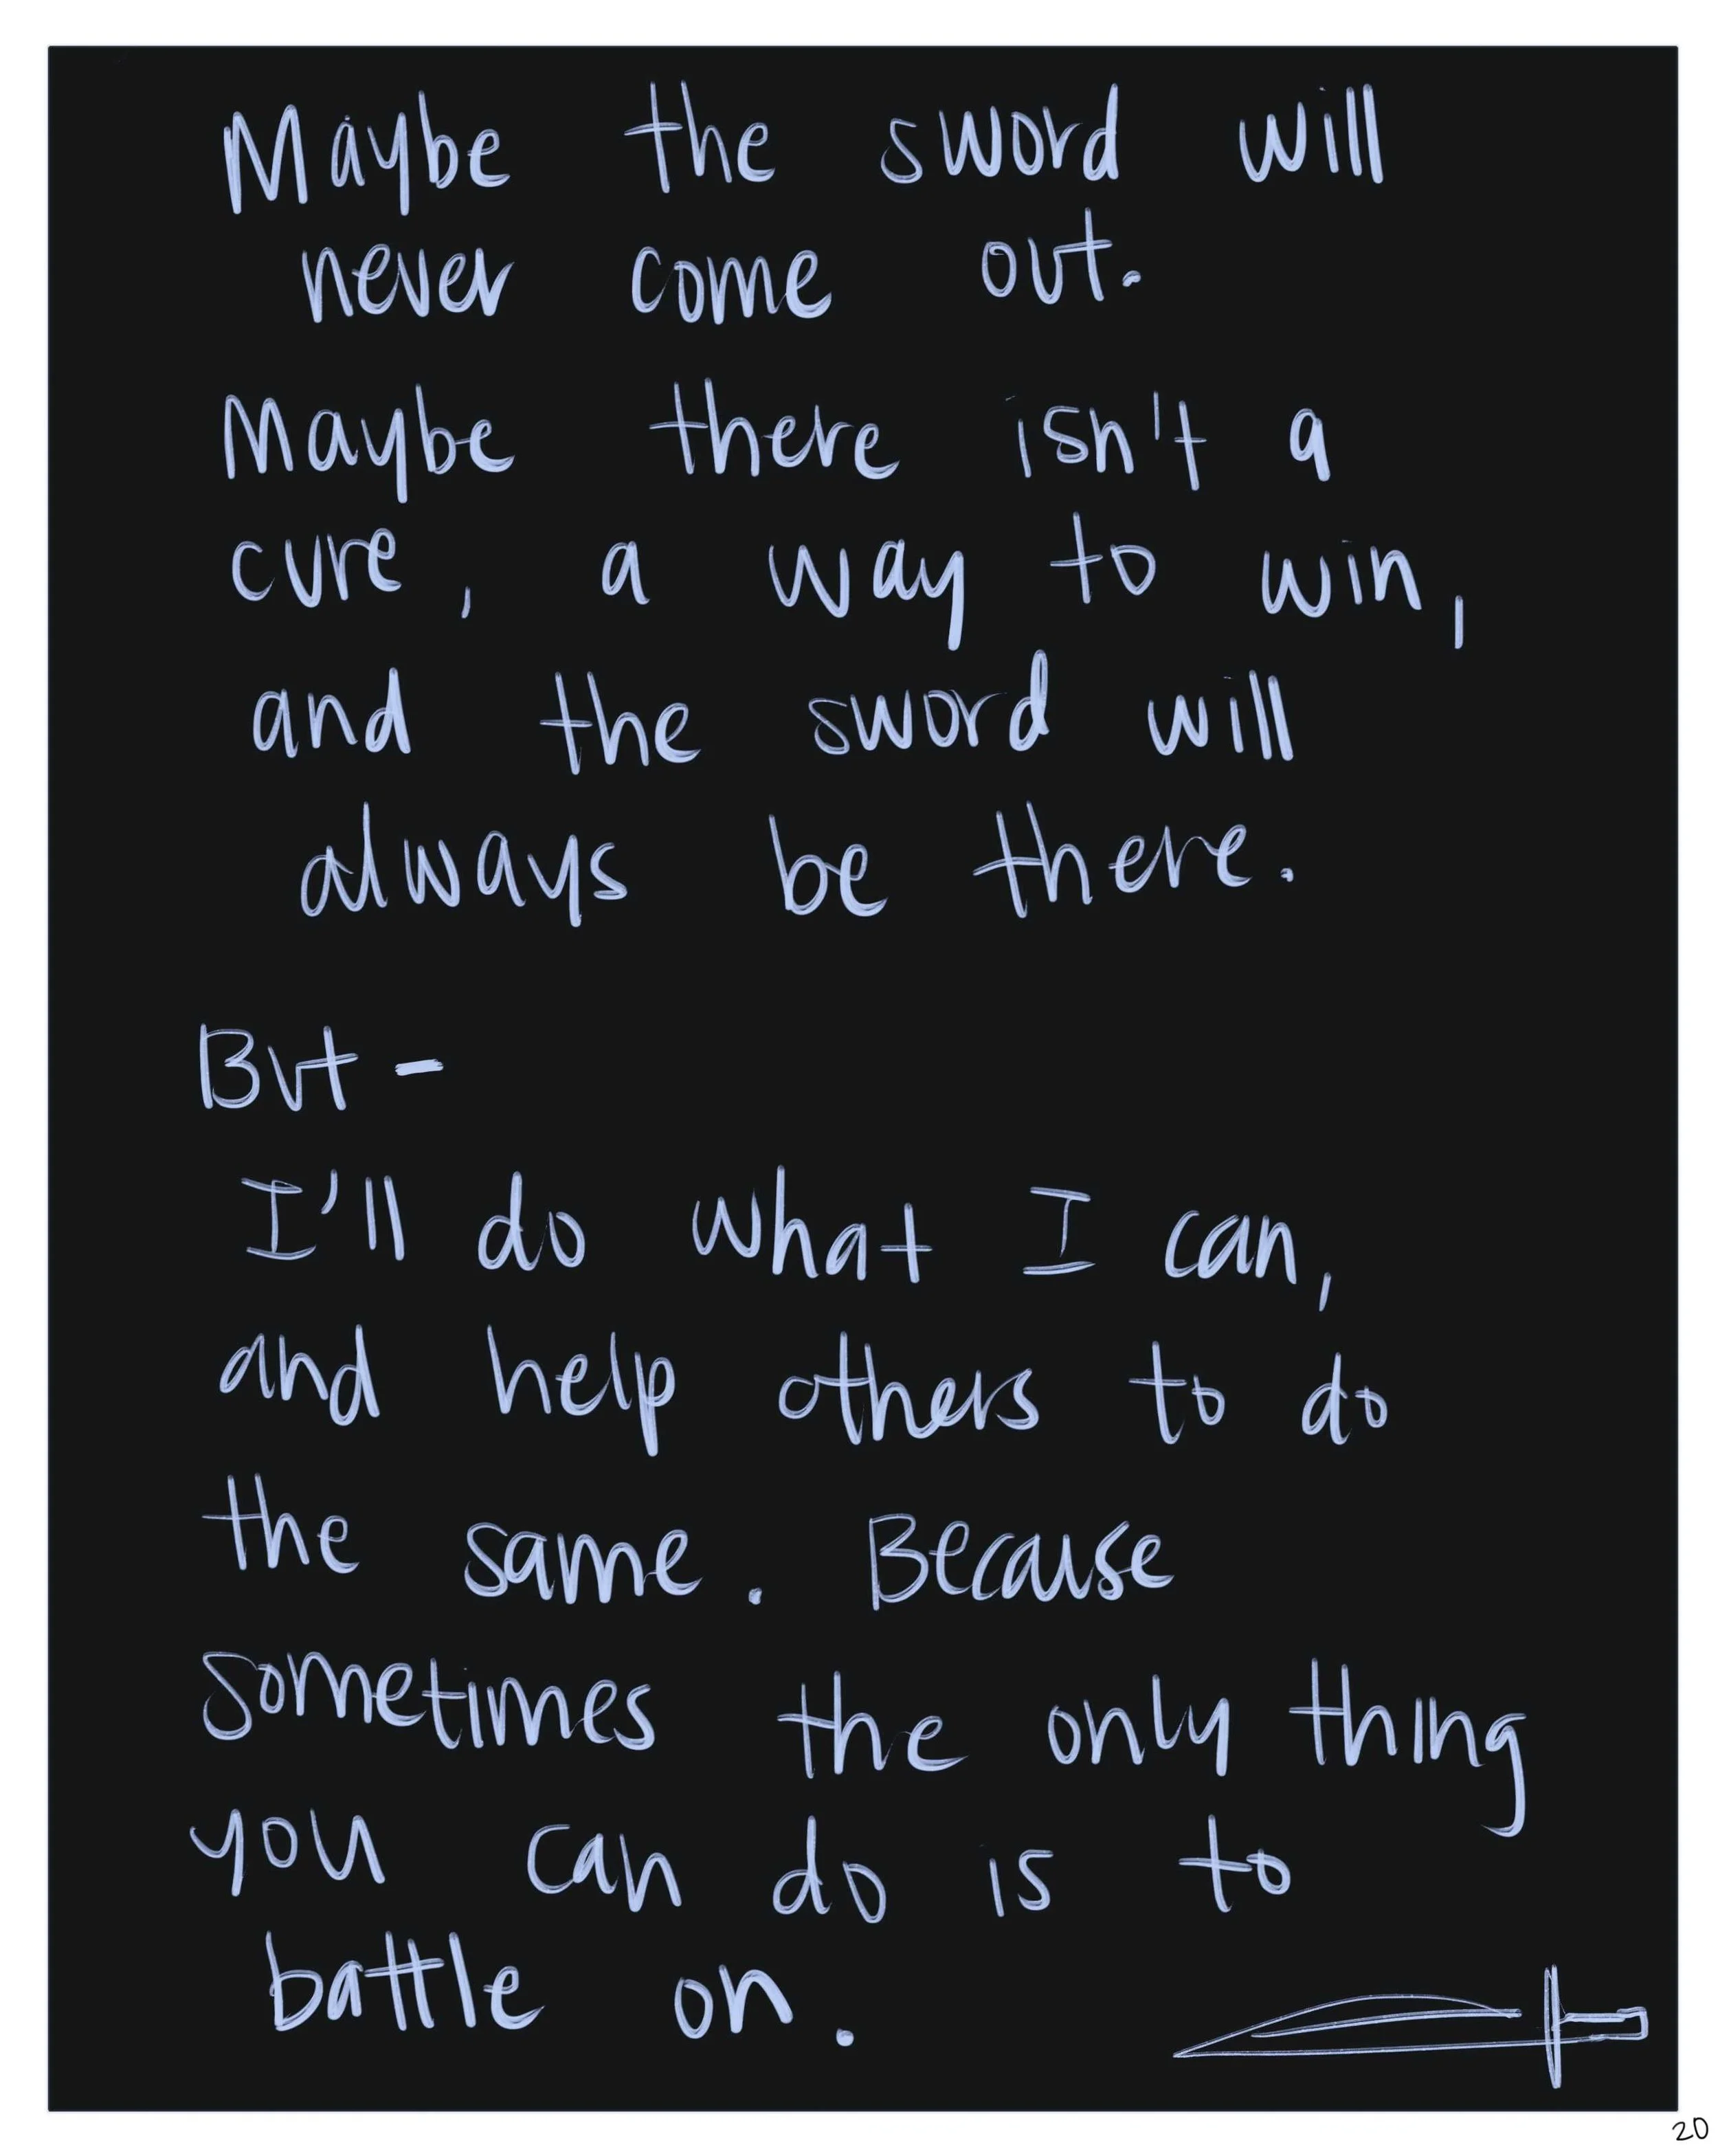 Maybe the sword will
never come out.
Maybe there isn't a
cure, a way to win,
and the sword will
always be there.
But-
I'll do what I can,
and help others to do
the same. Because
sometimes the only thing
you can do is to
battle on.
20